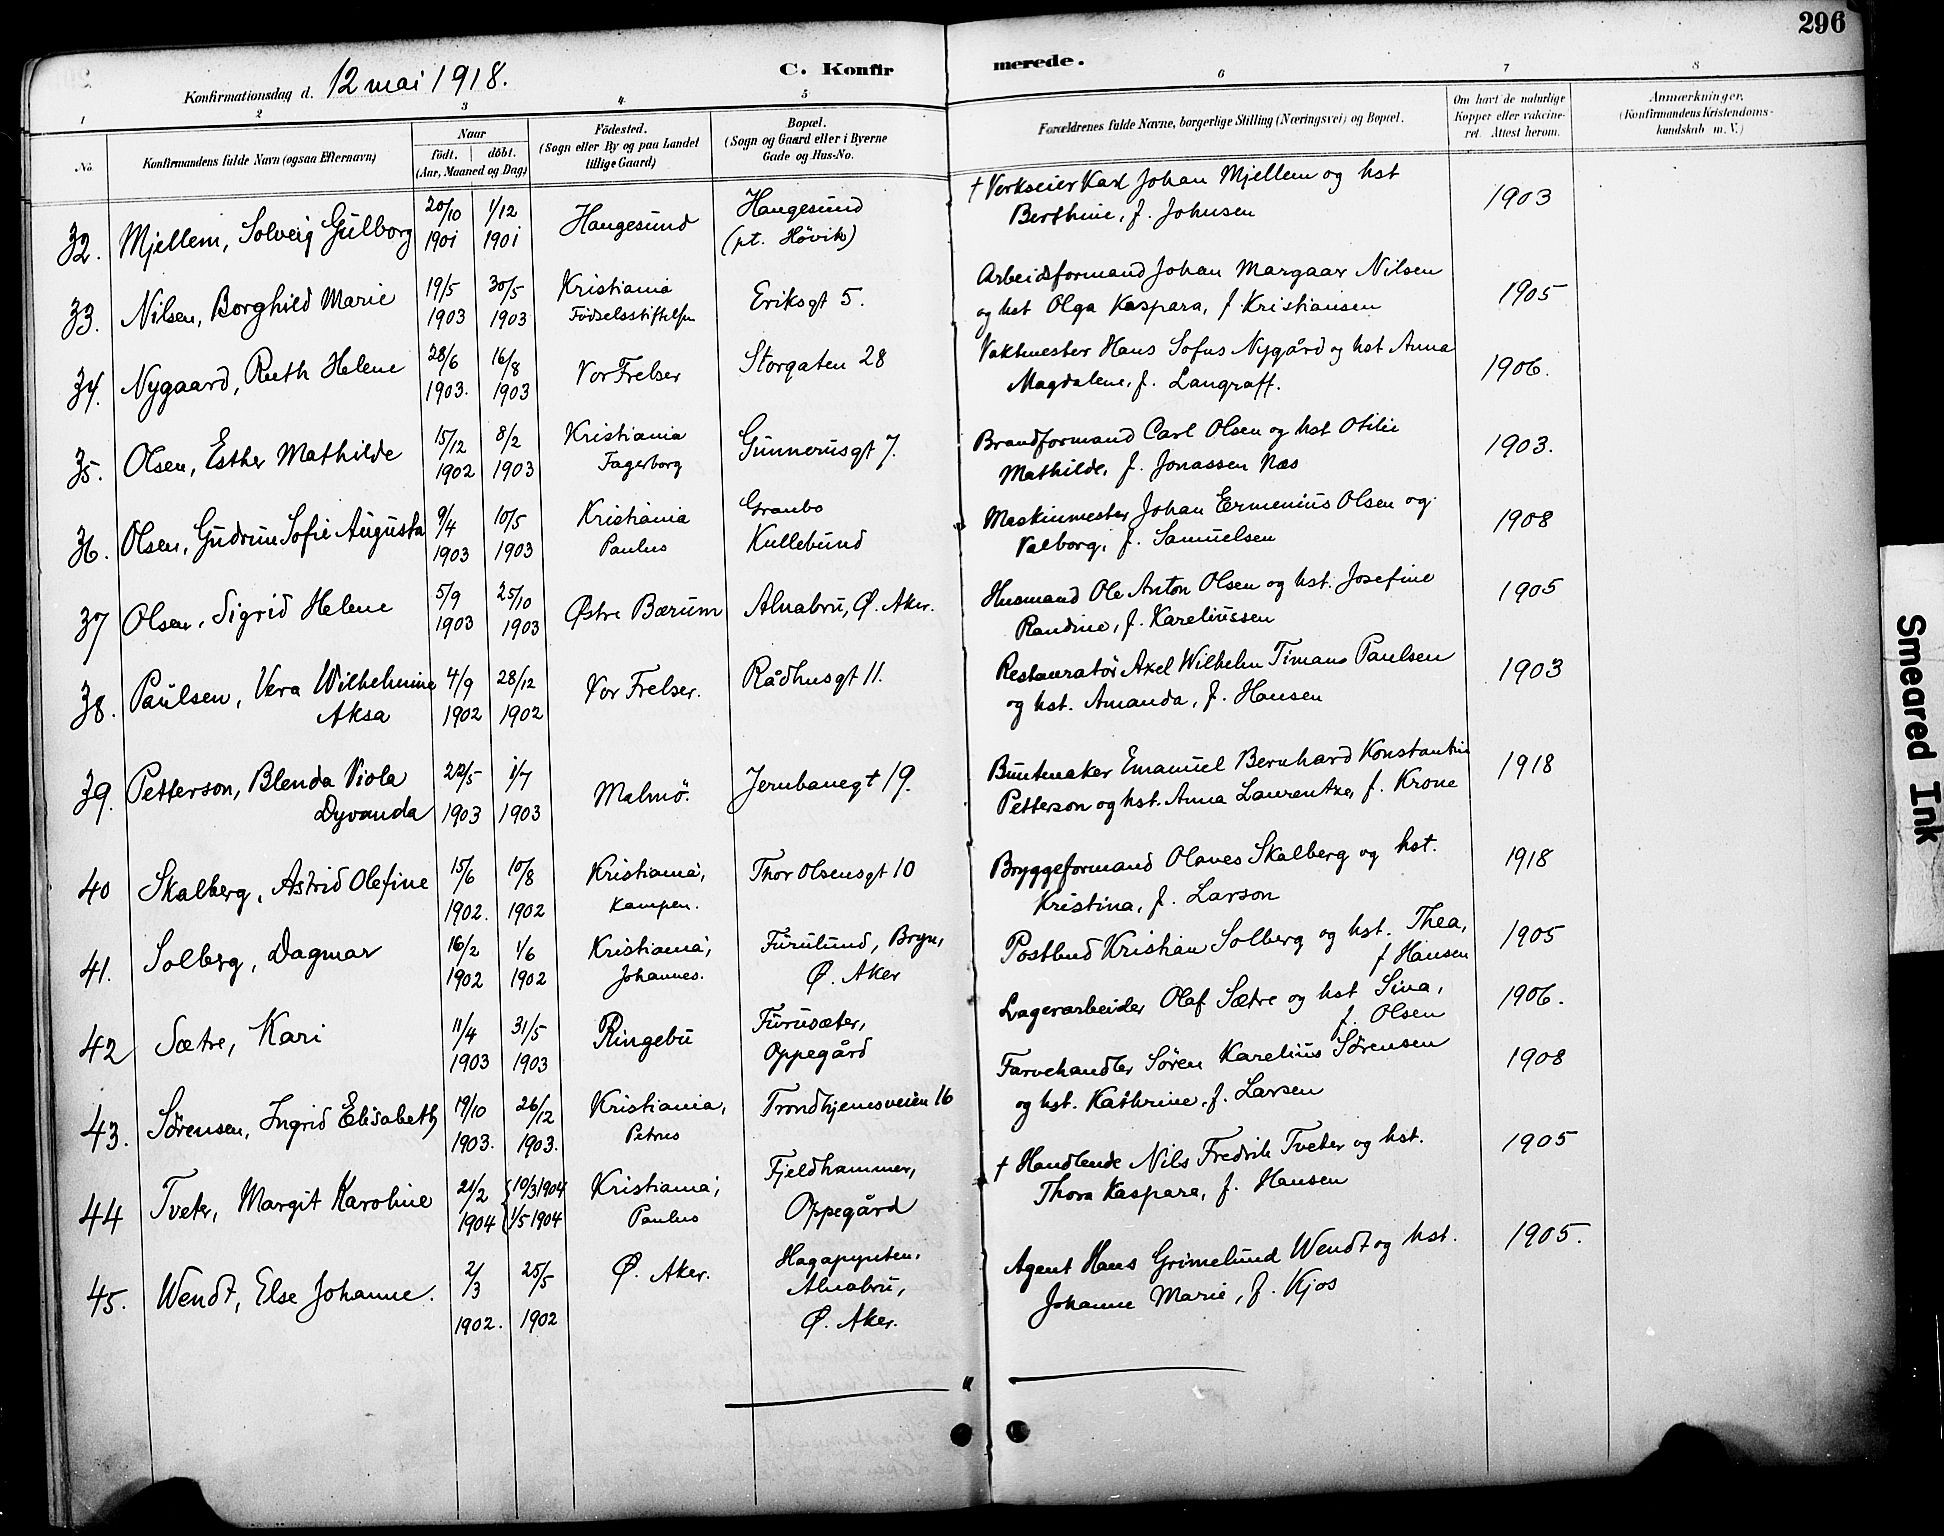 296
Konfirmationsdag d. 12 mai 1918.
C. Konfirmerede.
1 2 3 4 5 6 7 8
No. Konfirmandens fulde Navn (ogsaa Efternavn)
Naar
födt. döbt.
(Aar, Maaned og Dag)
Födested.
(Sogn eller By og paa Landet
tillige Gaard)
Bopæl.
(Sogn og Gaard eller i Byerne
Gade og Hus-No.
Forældrenes fulde Navne, borgerlige Stilling (Næringsvei) og Bopæl.
Om havt de naturlige
Kopper eller vakcine-
ret. Attest herom.
Anmærkninger.
(Konfirmandens Kristendoms-
kundskab m. V.)
32. Mjellem, Solveig Gülborg 20/10 1901 1/12 1901 Haugesund Haugesund
(pt. Hövik)
† Verkseier Karl Johan Mjellem og hst
Berthine, f. Johnsen 1903
33. Nilsen, Borghild Marie 19/5 1903 30/5 1903 Kristiania
Födselsstiftelsen Eriksgt 5.
Arbeidsformand Johan Margaar Nilsen
og hst Olga Kaspara, f Kristiansen 1905
34. Nygaard, Ruth Helene 28/6 1903. 16/8 1903 Vor Frelser Storgaten 28
Vaktmester Hans Sofus Nygård og hst Anna
Magdalene, f. Langraff. 1906.
35. Olsen, Esther Mathilde 15/12 1902 8/2 1903 Kristiania
Fagerborg Gunnerusgt 7.
Brandformand Carl Olsen og hst Otilie
Mathilde, f. Jonassen Næs 1903.
36. Olsen, Gudrun Sofie Augusta 9/4 1903 10/5 1903 Kristiania
Paulus Granbo
Kullebund
Maskinmester Johan Ermenius Olsen og
Valborg, f. Samuelsen 1908
37 Olsen, Sigrid Helene 5/9 1903 25/10 1903 Østre Bærum Alnabru, Ø. Aker.
Husmand Ole Anton Olsen og hst. Josefine
Randine, f. Kareliussen 1905
38. Paulsen, Vera Wilhelmine
Aksa 4/9 1902 28/12 1902 Vor Frelser. Rådhusgt 11.
Restauratör Axel Wilhelm Timans Paulsen
og hst. Amanda, f. Hansen 1903
39. Petterson, Blenda Viola
Dyvanda 22/5 1903 1/7 1903 Malmö. Jernbanegt 19.
Buntmaker Emanuel Bernhard Konstantin
Petterson og hst. Anna Laurentze, f. Krone 1918
40 Skalberg, Astrid Olefine 15/6 1902. 10/8 1902 Kristiania,
Kampen. Thor Olsensgt 10
Bryggeformand Olaves Skalberg og hst.
Kristina, f. Larson 1918
41. Solberg, Dagmar 16/2 1902 1/6 1902 Kristiania,
Johannes. Furulund, Bryn,
Ø. Aker
Postbud Kristian Solberg og hst. Thea,
f Hansen 1905
42 Sætre, Kari 11/4 1903 31/5 1903 Ringebu Furusæter,
Oppegård
Lagerarbeider Olaf Sætre og hst Sina,
f. Olsen 1906.
43. Sörensen, Ingrid Elisabeth 19/10 1903. 26/12 1903. Kristiania,
Petrus Trondhjemsveien 16
Farvehandler Sören Karelius Sörensen
og hst. Kathrine, f. Larsen 1908
44 Tveter, Margit Karoline 21/2 1904 {10/3 1904
1/5 1904 Kristiania,
Paulus Fjeldhammer,
Oppegård
† Handlende Nils Fredrik Tveter og hst.
Thora Kaspara, f. Hansen 1905
45. Wendt, Else Johanne. 2/3 1902. 25/5 1902 Ø. Aker. Hagapynten,
Alnabru,
Ø. Aker.
Agent Hans Grimelund Wendt og hst.
Johanne Marie, f. Kjos 1905.
Smeared Ink